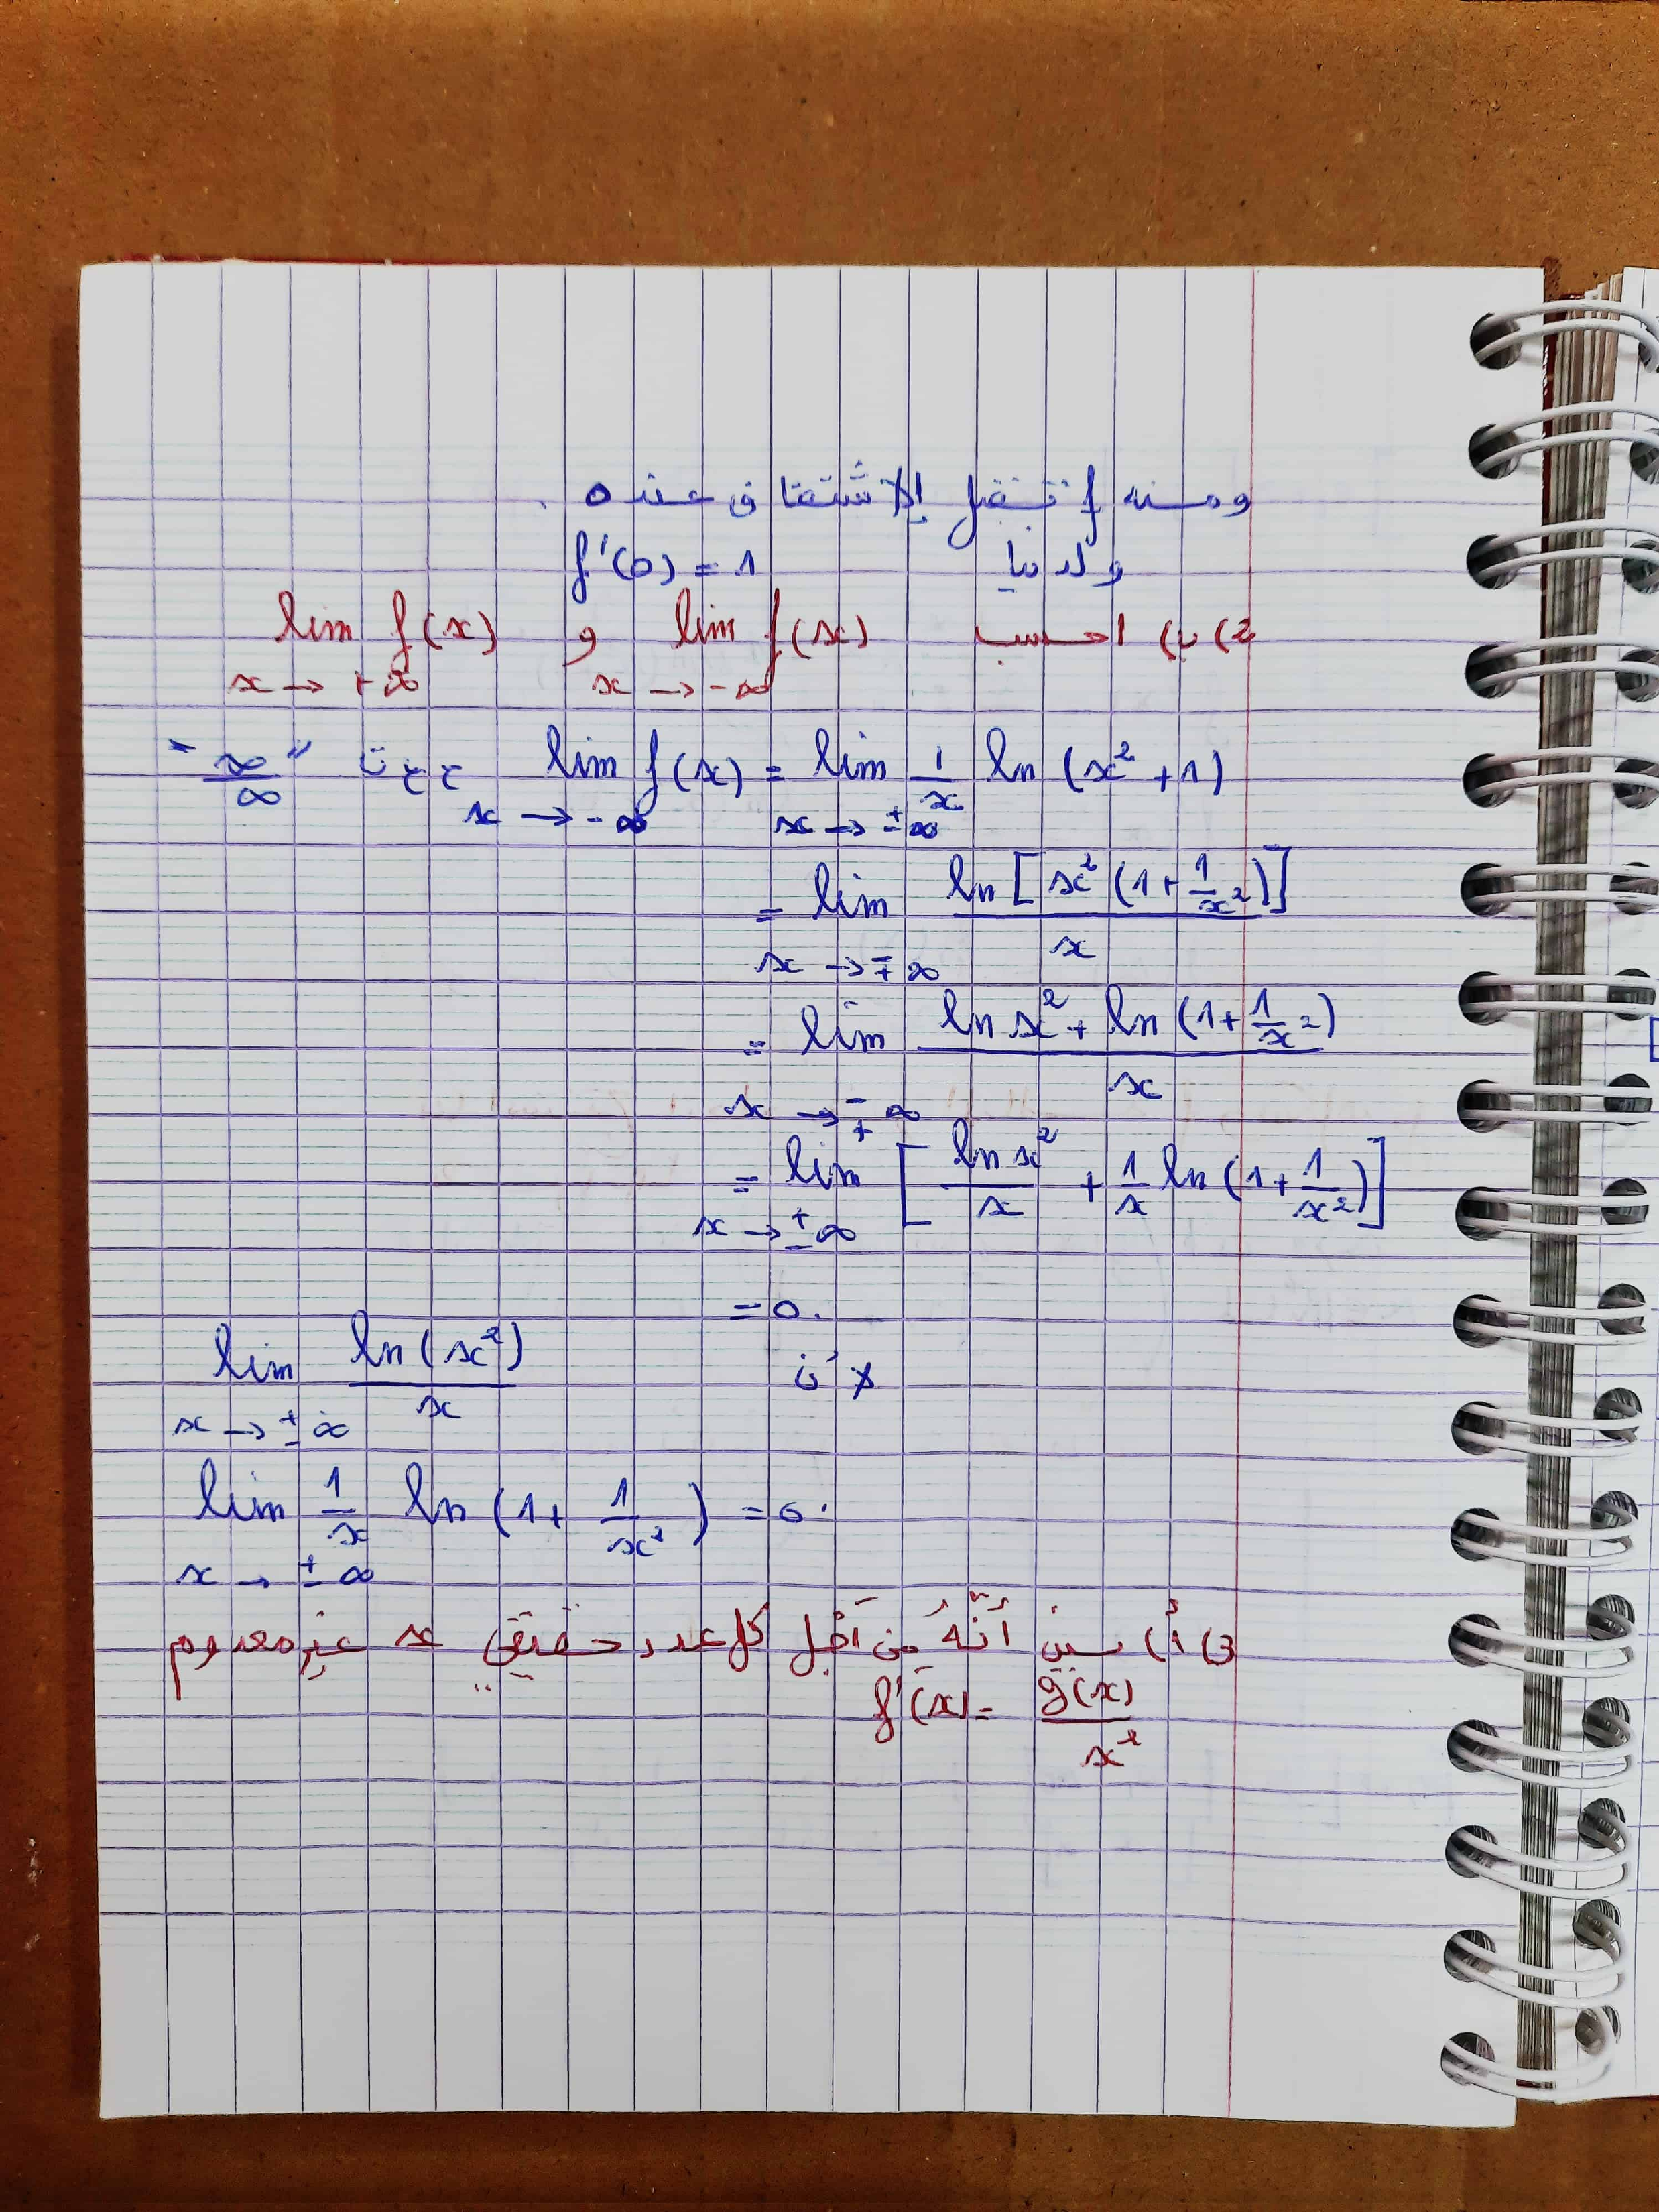 ومنه f تقبل الاشتقاق عند 0 .
ولدينا f'(0) = 1
2) ب) احسب lim f(x) x→-∞ و lim f(x) x→+∞
lim f(x) x→-∞ = lim x→±∞ 1/x ln (x²+1) ح ع ت "∞/∞"
= lim x→∓∞ ln[x²(1+1/x²)] / x
= lim x→∓∞ (ln x² + ln (1+1/x²)) / x
= lim x→±∞ [ ln x²/x + 1/x ln (1+1/x²) ]
= 0.
لأن lim x→±∞ ln(x²)/x
lim x→±∞ 1/x ln (1+ 1/x²) = 0.
3) أ) بين أنّهُ مِن أجْل كل عدد حقيقي x غير معدوم
f'(x) = g(x)/x²